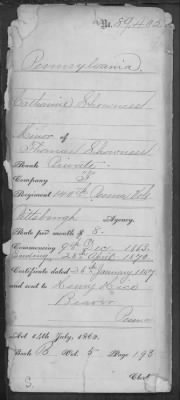 No. 89,402
Pennsylvania.
Catharine Showness
Minor of
Thomas Showness
Rank Private
Company F
Regiment 140th Penna Vols
Pittsburgh Agency.
Rate per month $ 8.
Commencing 9th Dec. 1863.
Ending 28th April 1870.
Certificate dated 26th January 1867
and sent to Henry Hice
Beaver
Penna
Act 14th July, 1862.
Book B Vol. 5 Page 198
S. Clerk